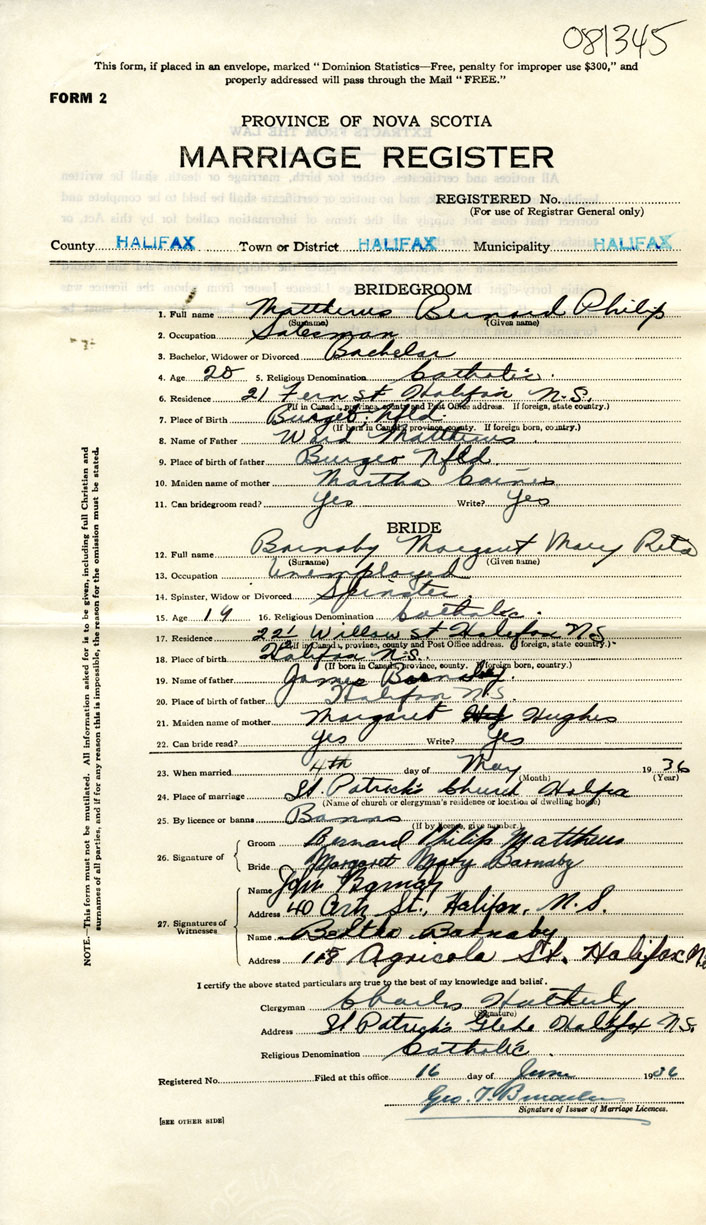 081345
This form, if placed in an envelope, marked "Dominion Statistics—Free, penalty for improper use $300," and
properly addressed will pass through the Mail "FREE."
FORM 2
PROVINCE OF NOVA SCOTIA
MARRIAGE REGISTER
REGISTERED No.
(For use of Registrar General only)
County HALIFAX Town or District HALIFAX Municipality HALIFAX
BRIDEGROOM
1. Full name Matthews Bernard Philip
(Surname) (Given name)
2. Occupation Salesman
3. Bachelor, Widower or Divorced Bachelor
4. Age 20 5. Religious Denomination Catholic.
6. Residence 21 Fern St Halifax N.S.
(If in Canada, province, county and Post Office address. If foreign, state country.)
7. Place of Birth Burgeo Nfld
(If born in Canada, province, county. If foreign born, country.)
8. Name of Father Ward Matthews
9. Place of birth of father Burgeo Nfld.
10. Maiden name of mother Martha
11. Can bridegroom read? Yes Write? Yes
BRIDE
12. Full name Barnaby Margaret Mary Rita
(Surname) (Given name)
13. Occupation Unemployed
14. Spinster, Widow or Divorced Spinster.
15. Age 19 16. Religious Denomination Catholic.
17. Residence 221 Willow St Halifax NS
(If in Canada, province, county and Post Office address. If foreign, state country.)
18. Place of birth Halifax N.S.
(If born in Canada, province, county. If foreign born, country.)
19. Name of father James Barnaby.
20. Place of birth of father Halifax NS
21. Maiden name of mother Margaret Hughes
22. Can bride read? Yes Write? Yes
23. When married 4th day of May 1936
(Month) (Year)
24. Place of marriage St. Patrick's Church Halifax
(Name of church or clergyman's residence or location of dwelling house)
25. By licence or banns Banns
(If by licence, give number.)
26. Signature of Groom Bernard Philip Matthews
Bride Margaret Mary Barnaby
27. Signatures of Witnesses
Name John
Address 40 St., Halifax, N.S.
Name Bertha Barnaby
Address 118 Agricola St. Halifax
I certify the above stated particulars are true to the best of my knowledge and belief.
Clergyman Charles
(Signature)
Address St Patrick's Glebe Halifax N.S.
Religious Denomination Catholic.
Registered No. Filed at this office 16 day of June 1936
Geo. T.
Signature of Issuer of Marriage Licences.
[SEE OTHER SIDE]
NOTE.—This form must not be mutilated. All information asked for is to be given, including full Christian and
surnames of all parties, and if for any reason this is impossible, the reason for the omission must be stated.